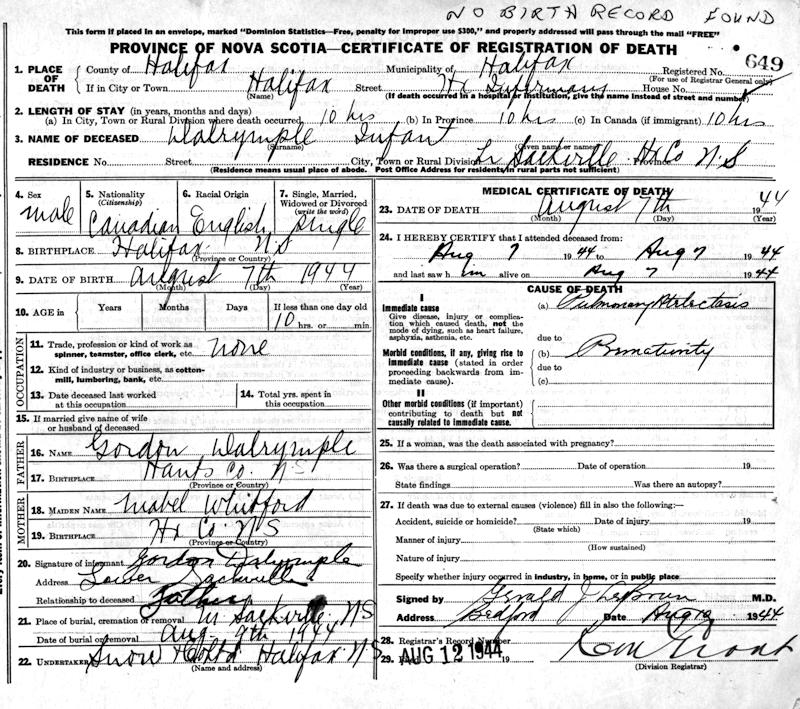 NO BIRTH RECORD FOUND
This form if placed in an envelope, marked "Dominion Statistics—Free, penalty for improper use $300," and properly addressed will pass through the mail "FREE"
PROVINCE OF NOVA SCOTIA—CERTIFICATE OF REGISTRATION OF DEATH
649
1. PLACE OF DEATH
County of Halifax Municipality of Halifax Registered No.
(For use of Registrar General only)
If in City or Town Halifax Street House No.
(Name) (If death occurred in a hospital or institution, give the name instead of street and number)
2. LENGTH OF STAY (in years, months and days)
(a) In City, Town or Rural Division where death occurred 10 hrs (b) In Province 10 hrs (c) In Canada (if immigrant) 10 hrs
3. NAME OF DECEASED Dalrymple Infant
(Surname) (Given name or names)
RESIDENCE No. Street City, Town or Rural Division Lr Sackville Hx Co Province N.S
(Residence means usual place of abode. Post Office Address for residents in rural parts not sufficient)
4. Sex
male
5. Nationality
(Citizenship)
Canadian
6. Racial Origin
English
7. Single, Married, Widowed or Divorced
(write the word)
single
8. BIRTHPLACE Halifax NS
(Province or Country)
9. DATE OF BIRTH August 7th 1944
(Month) (Day) (Year)
10. AGE in Years Months Days If less than one day old
10 hrs. or min.
OCCUPATION
11. Trade, profession or kind of work as spinner, teamster, office clerk, etc. none
12. Kind of industry or business, as cotton-mill, lumbering, bank, etc.
13. Date deceased last worked at this occupation
14. Total yrs. spent in this occupation
15. If married give name of wife or husband of deceased
FATHER
16. NAME Gordon Dalrymple
17. BIRTHPLACE Hants Co. NS
(Province or Country)
MOTHER
18. MAIDEN NAME Mabel Whitford
19. BIRTHPLACE Hx Co NS
(Province or Country)
20. Signature of informant Gordon Dalrymple
Address Lower Sackville
Relationship to deceased Father
21. Place of burial, cremation or removal Sackville NS
Date of burial or removal Aug. 9th 1944
22. UNDERTAKER Snow & Co Ltd Halifax NS
(Name and address)
MEDICAL CERTIFICATE OF DEATH
23. DATE OF DEATH August 7th 1944
(Month) (Day) (Year)
24. I HEREBY CERTIFY that I attended deceased from:
Aug 7 1944 to Aug 7 1944
and last saw him alive on Aug 7 1944
CAUSE OF DEATH
I
Immediate cause
Give disease, injury or complication which caused death, not the mode of dying, such as heart failure, asphyxia, asthenia, etc.
(a) Pulmonary Atelectasis
due to
Morbid conditions, if any, giving rise to immediate cause (stated in order proceeding backwards from immediate cause).
(b) Prematurity
due to
(c)
II
Other morbid conditions (if important) contributing to death but not causally related to immediate cause.
25. If a woman, was the death associated with pregnancy?
26. Was there a surgical operation? Date of operation 19
State findings Was there an autopsy?
27. If death was due to external causes (violence) fill in also the following:—
Accident, suicide or homicide? Date of injury 19
(State which)
Manner of injury
(How sustained)
Nature of injury
Specify whether injury occurred in industry, in home, or in public place
Signed by Gerald J LeBrun M.D.
Address Bedford Date Aug 1944
28. Registrar's Record Number
29. AUG 12 1944 19
(Division Registrar)